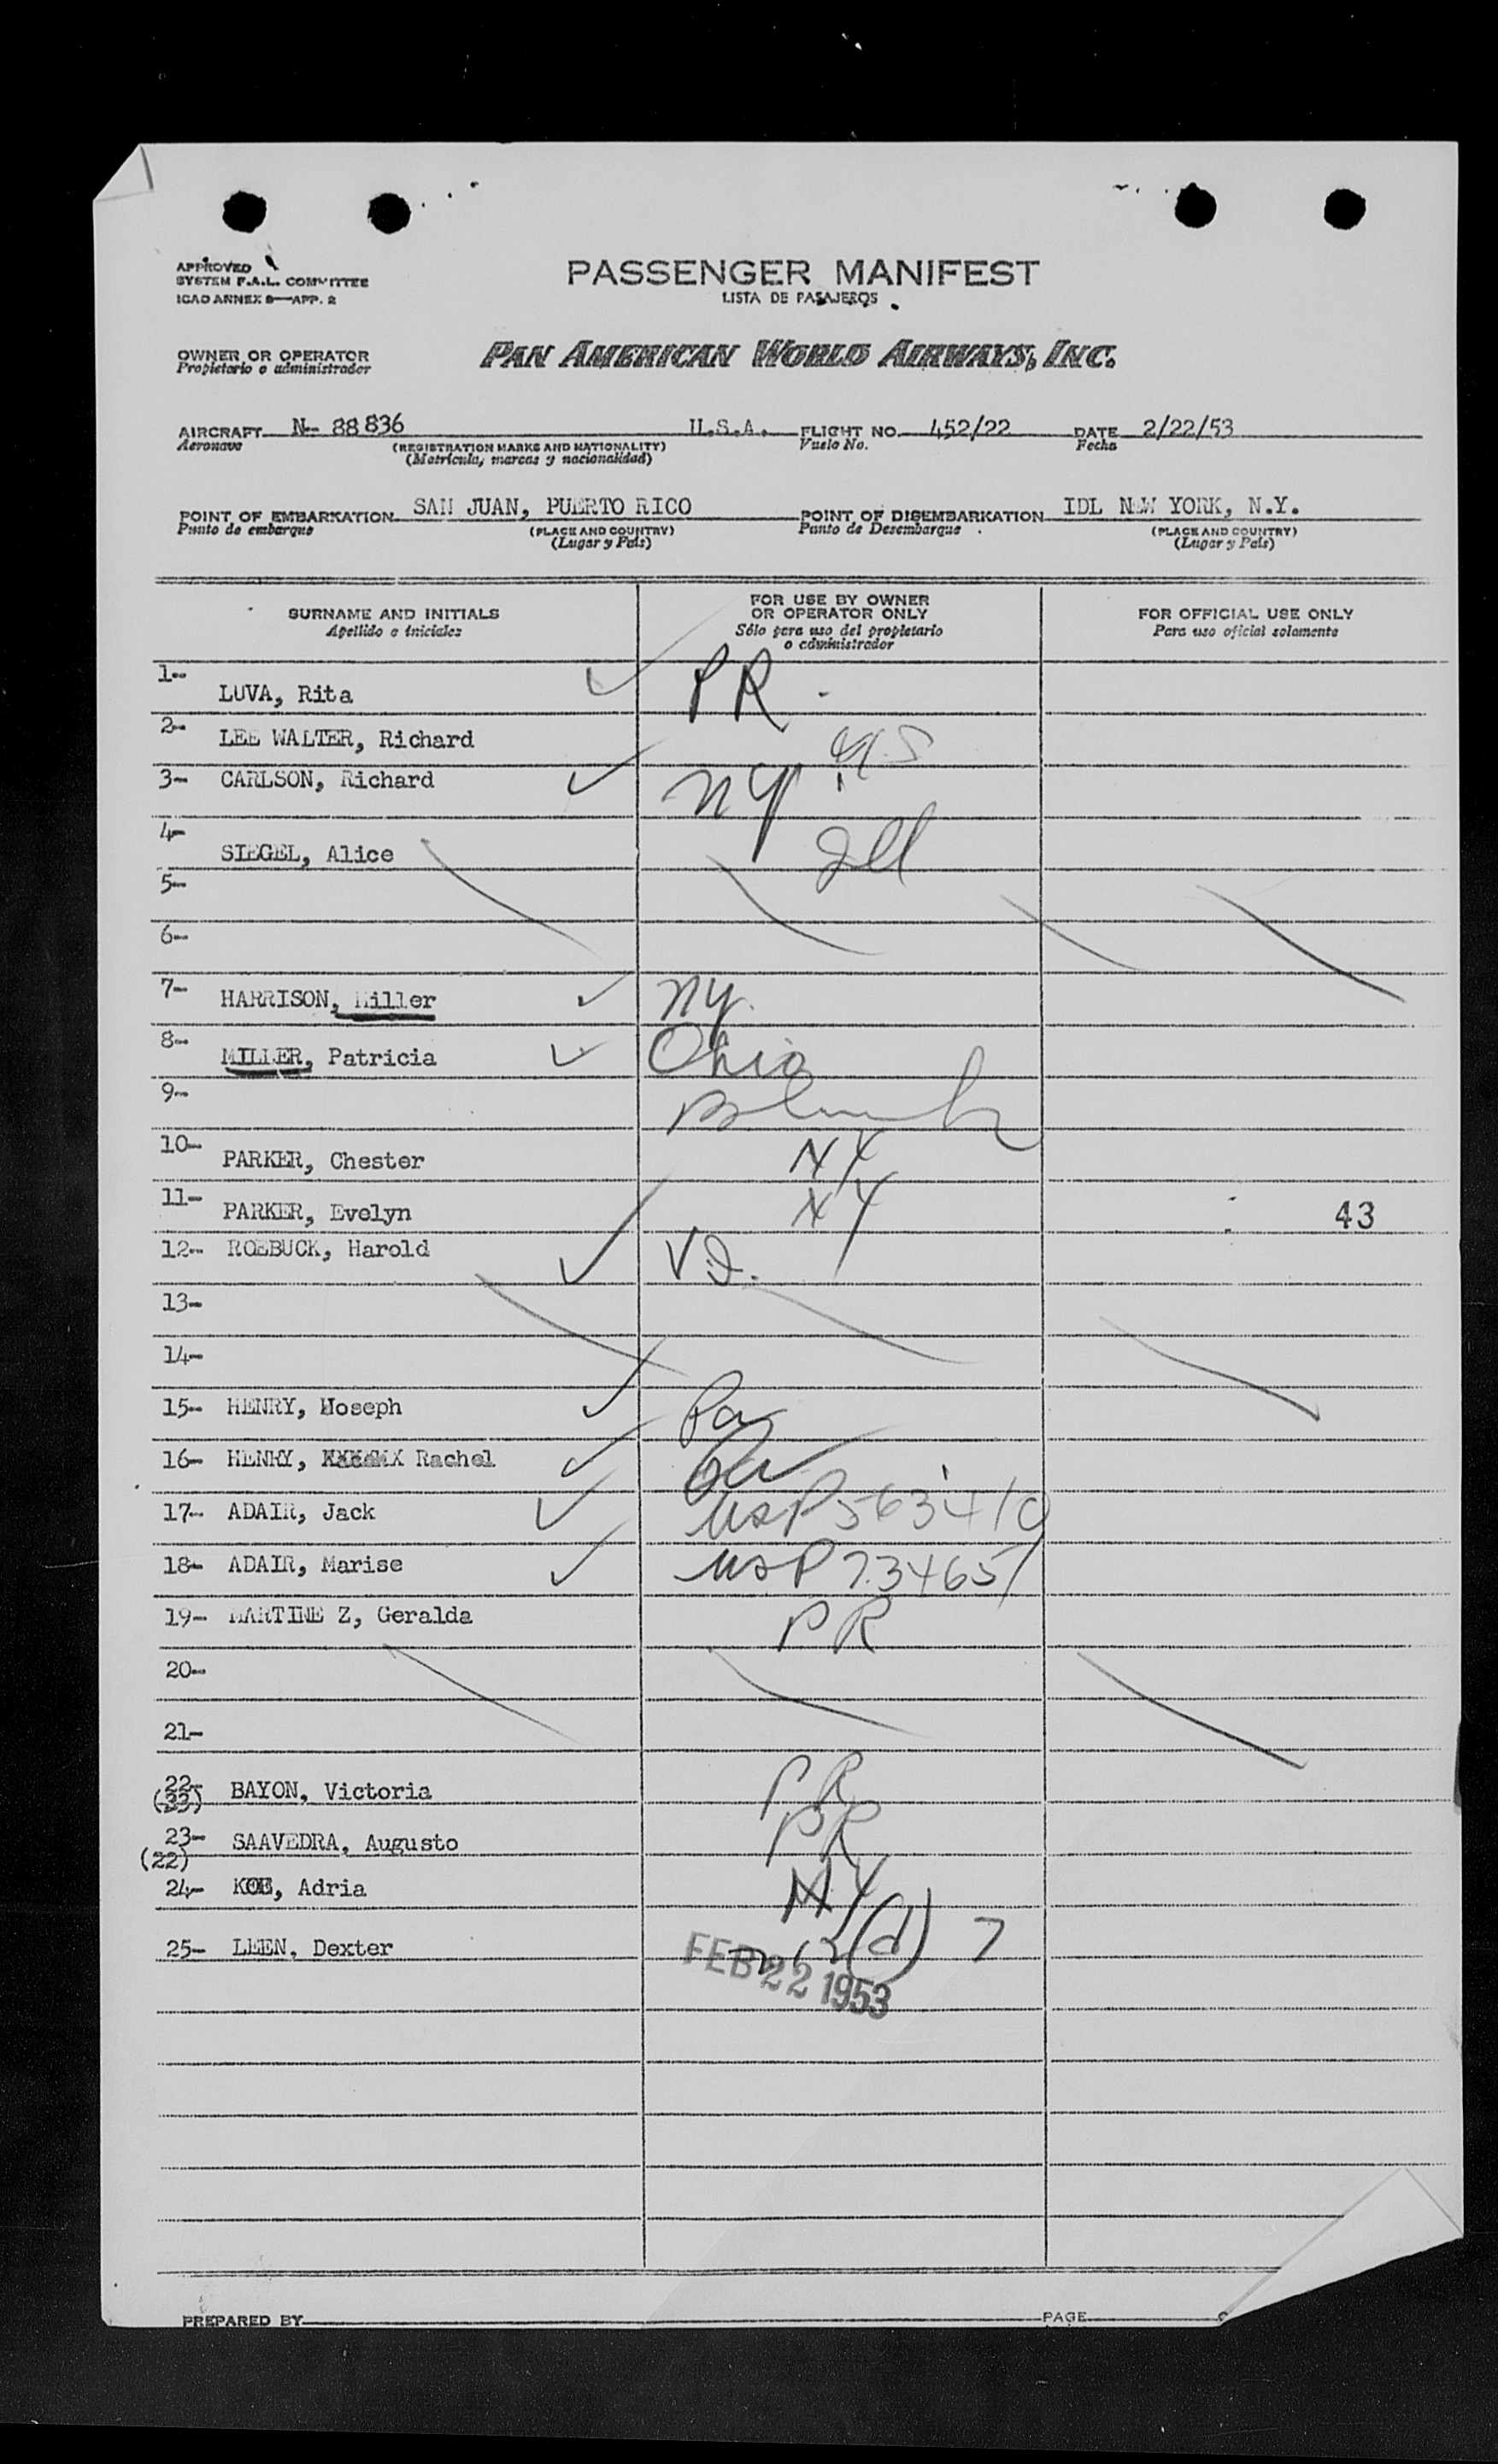 APPROVED
SYSTEM F.A.L. COMMITTEE
ICAO ANNEX 9—APP. 2
PASSENGER MANIFEST
LISTA DE PASAJEROS
OWNER OR OPERATOR
Propietario o administrador
PAN AMERICAN WORLD AIRWAYS, INC.
AIRCRAFT N- 88836 U.S.A. FLIGHT NO. 452/22 DATE 2/22/53
Aeronave (REGISTRATION MARKS AND NATIONALITY) Vuelo No. Fecha
(Matrícula, marcas y nacionalidad)
POINT OF EMBARKATION SAN JUAN, PUERTO RICO POINT OF DISEMBARKATION IDL NEW YORK, N.Y.
Punto de embarque (PLACE AND COUNTRY) Punto de Desembarque (PLACE AND COUNTRY)
(Lugar y País) (Lugar y País)
SURNAME AND INITIALS FOR USE BY OWNER OR OPERATOR ONLY FOR OFFICIAL USE ONLY
Apellido e iniciales Sólo para uso del propietario o administrador Para uso oficial solamente
1-- LUVA, Rita PR
2-- LEE WALTER, Richard U.S
3- CARLSON, Richard NY
4- SIEGEL, Alice Ill
5--
6--
7- HARRISON, Miller NY.
8-- MILLER, Patricia Ohio
9-- Blank
10- PARKER, Chester NY
11- PARKER, Evelyn NY 43
12- ROEBUCK, Harold V.I.
13-
14-
15- HENRY, Moseph Pa
16- HENRY, Rachel Pa
17- ADAIR, Jack USP 563410
18- ADAIR, Marise USP 734651
19- MARTINE Z, Geralda PR
20--
21-
22- (33) BAYON, Victoria PR
23- (22) SAAVEDRA, Augusto PR
24- KOE, Adria NY
25- LEEN, Dexter 212(d) 7
FEB 22 1953
PREPARED BY PAGE